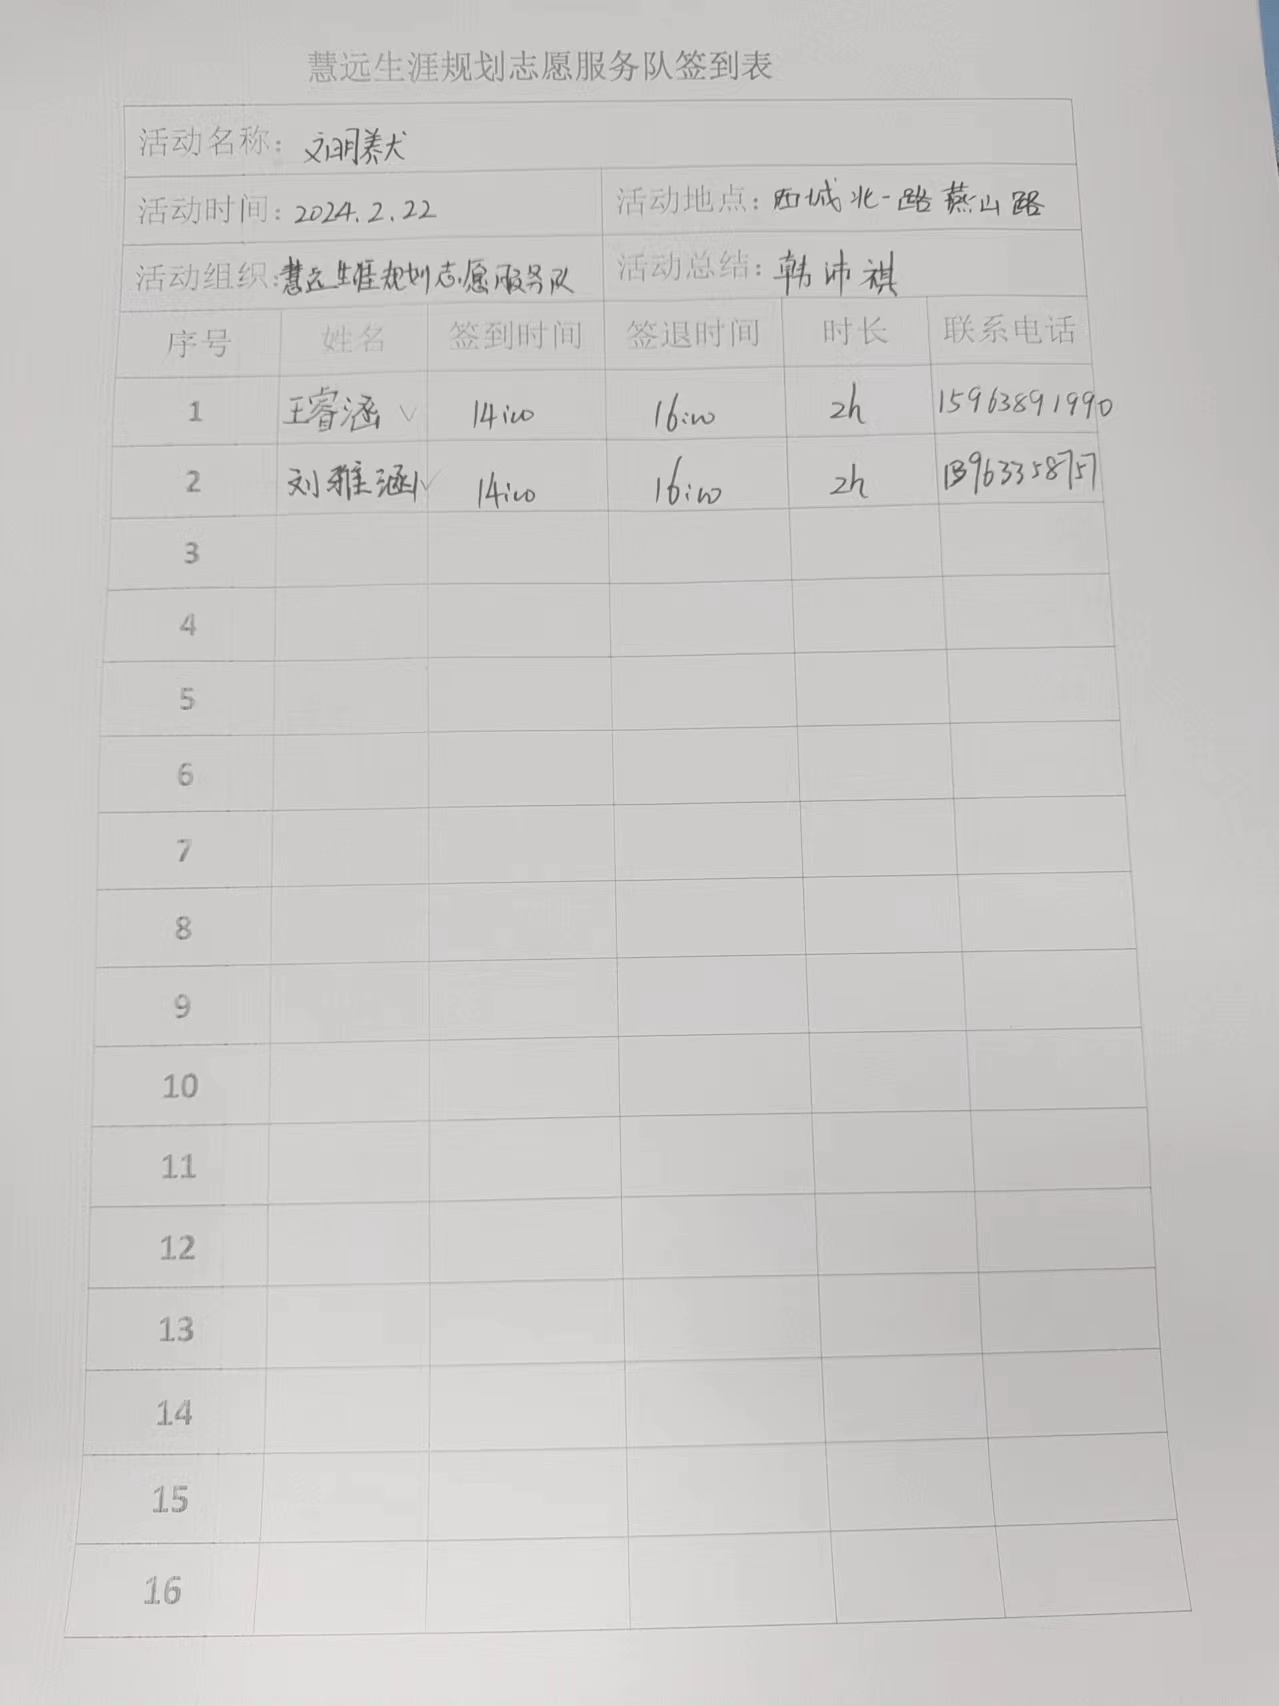 慧远生涯规划志愿服务队签到表
活动名称：文明养犬
活动时间：2024.2.22 活动地点：西城北一路燕山路
活动组织：慧远生涯规划志愿服务队 活动总结：韩沛祺
序号 姓名 签到时间 签退时间 时长 联系电话
1 王睿涵 ✓ 14:00 16:00 2h 15963891990
2 刘雅涵 ✓ 14:00 16:00 2h 13963358757
3
4
5
6
7
8
9
10
11
12
13
14
15
16